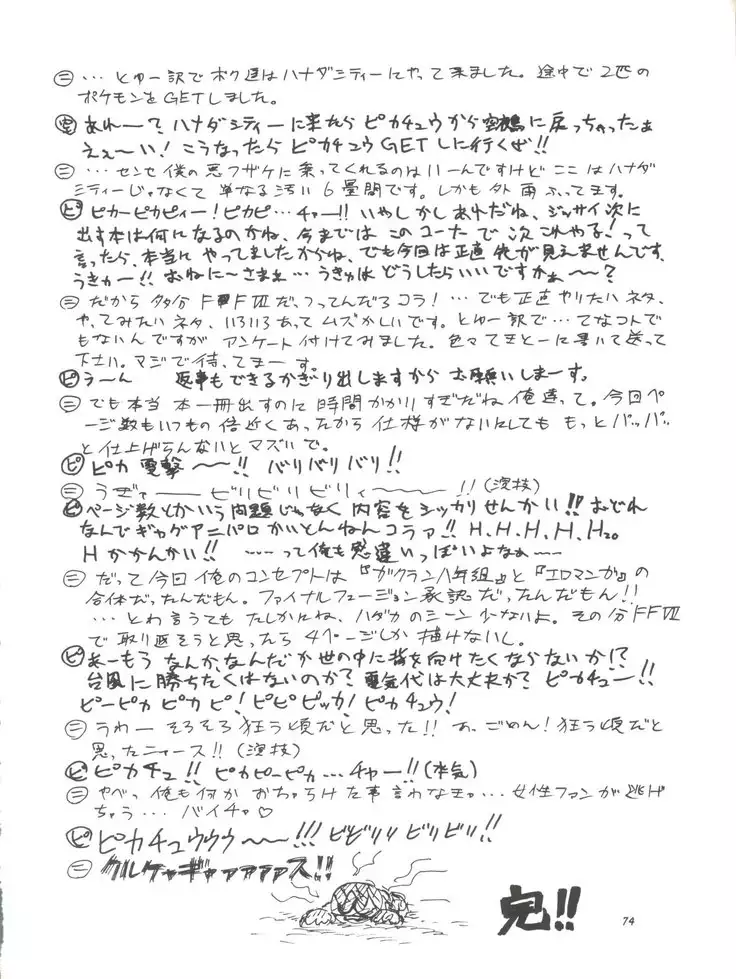 ㊁ … とゆー訳でボク達はハナダシティーにやって来ました。途中で2匹の
ポケモンをGETしました。
あれー？ ハナダシティーに来たら ピカチュウから に戻っちゃったぁ
えぇ〜い！ こうなったら ピカチュウGETしに行くぜ!!
㊁ … センセ 僕の悪フザケに乗ってくれるのはいーんですけど ここはハナダ
シティーじゃなくて 単なる汚い6畳間です。しかも外 雨 ふってます。
ピ ピカーピカピィー！ピカピ…チャー!! いやしかしあれだね、ジッサイ次に
出す本は何になるのかね、今までは このコーナーで 次これやる！って
言ったら、本当に やってましたからね、でも今回は正直 先が見えませんです、
うきゅー!! おねに〜さまぁ… うきゅは どうしたらいいですかぁ〜〜？
㊁ だから 多分 FFⅦ だ、つってんだろコラ！ … でも正直やりたいネタ、
やってみたいネタ、いろいろあって ムズかしいです。とゆー訳で… てなコトで
もないんですが アンケート付けてみました。色々てきとーに書いて送って
下さい。マジで待ってまーす。
ピ う〜ん 返事もできるかぎり出しますから お願いしまーす。
㊁ でも本当 本一冊出すのに 時間かかりすぎだね俺達って。今回ペ
ージ数もいつもの倍近くあったから仕様がないにしても もっとパッパッ
と仕上げらんないとマズいで。
ピ ピカ 電撃 〜〜!! バリバリバリ!!
㊁ うぎゃーービリビリビリィーーー!! (演技)
ピ ページ数とかいう問題じゃなく 内容を シッカリせんかい!! おどれ
なんでギャグアニパロかいとんねんコラァ!! H、H、H、H、H₂O
Hかかんかい!! ……って俺も勘違いっぽいよなぁ…
㊁ だって今回 俺のコンセプトは 『ガクラン八年組』と『エロマンガ』の
合体だったんだもん。ファイナルフュージョン承認だったんだもん!!
… とわ言うても たしかにね、ハダカのシーン 少ないよ。その分FFⅦ
で取り返そうと思ったら 4ページしか描けないし。
ピ あーもう なんか、なんだか 世の中に背を向けたくならないか!?
台風に勝ちたくはないのか？ 電気代は大丈夫か？ ピカチュー!!
ピーピカ ピカピ！ピピピッカ！ピカチュウ！
㊁ うわー そろそろ狂う頃だと思った!! あ、ごめん！狂う頃だと
思ったニャース!! (演技)
ピ ピカチュ!! ピカピーピカ…チャー!! (本気)
㊁ やべっ 俺も何か おちゃらけた事言わなきゃ… 女性ファンが逃げ
ちゃう… バイチャ♡
ピ ピカチュウウウ〜〜!!! ビビリリ ビリビリ!!
㊁ クルケャギャァァァァス!!
完!!
74